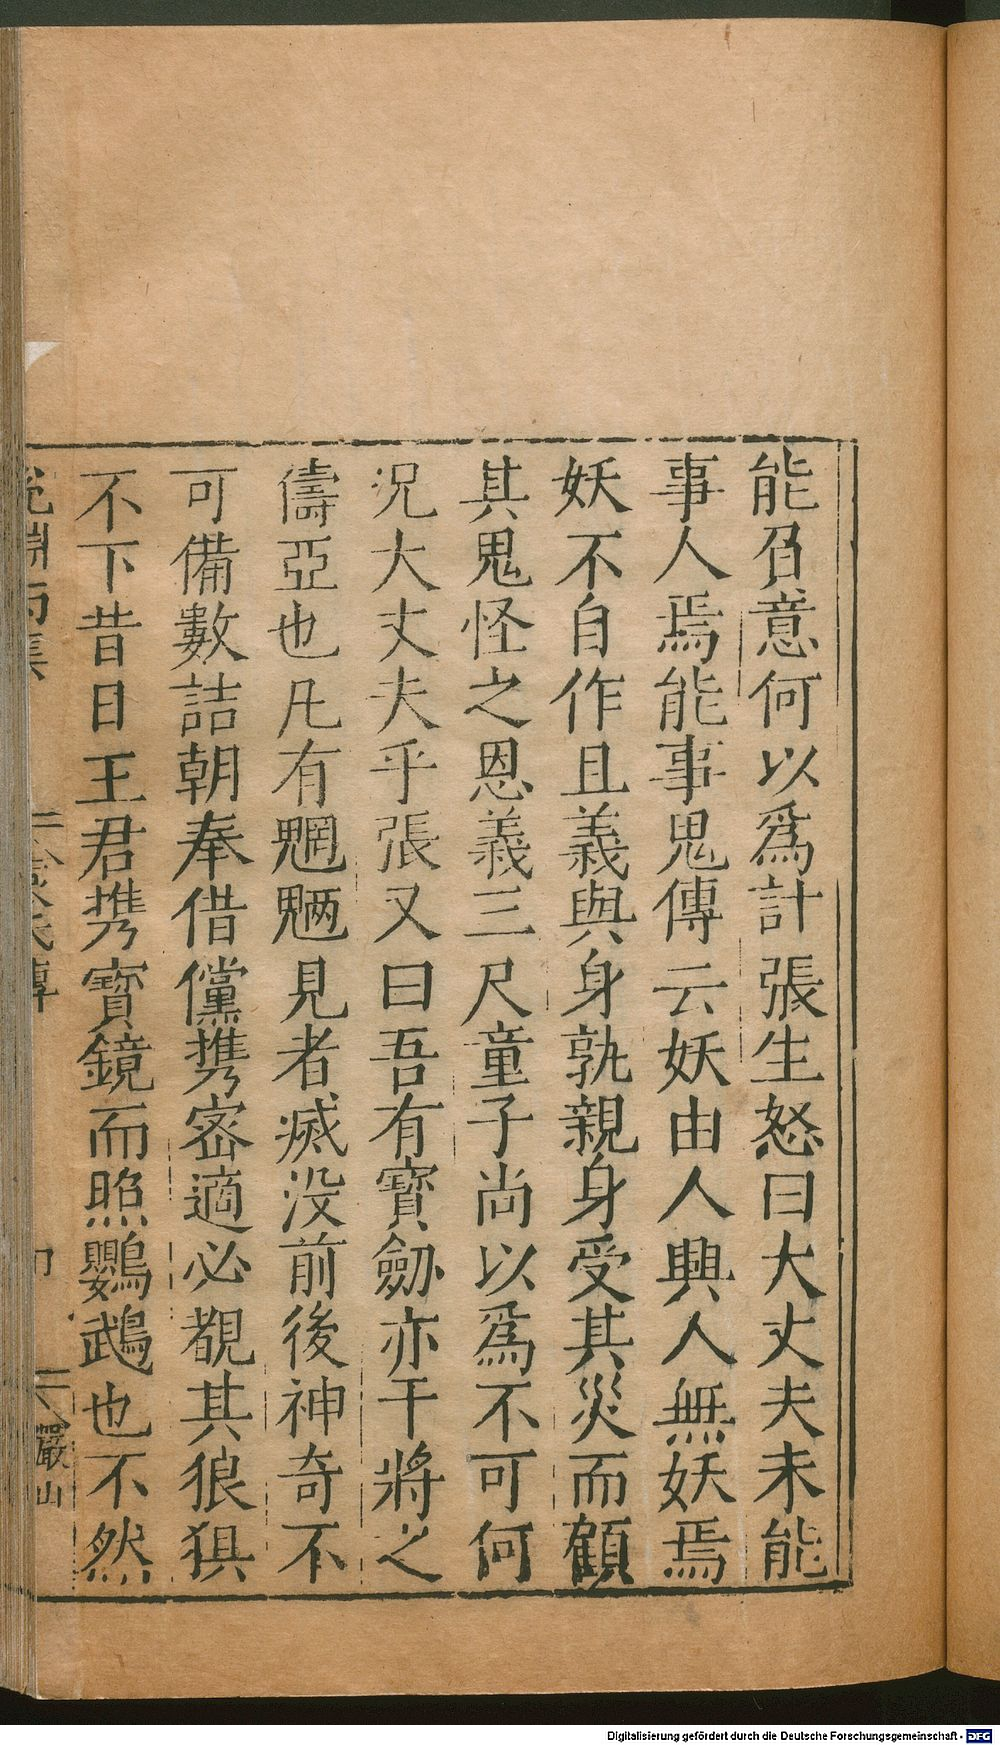 能負意何以爲計張生怒曰大丈夫未能
事人焉能事鬼傳云妖由人興人無妖焉
妖不自作且義與身孰親身受其災而顧
其鬼怪之恩義三尺童子尚以爲不可何
况大丈夫乎張又曰吾有寶劒亦干將之
儔亞也凡有魍魎見者滅没前後神奇不
可備數詰朝奉借儻携密適必覩其狼狽
不下昔日王君携寶鏡而照鸚鵡也不然
嚴山
Digitalisierung gefördert durch die Deutsche Forschungsgemeinschaft - DFG